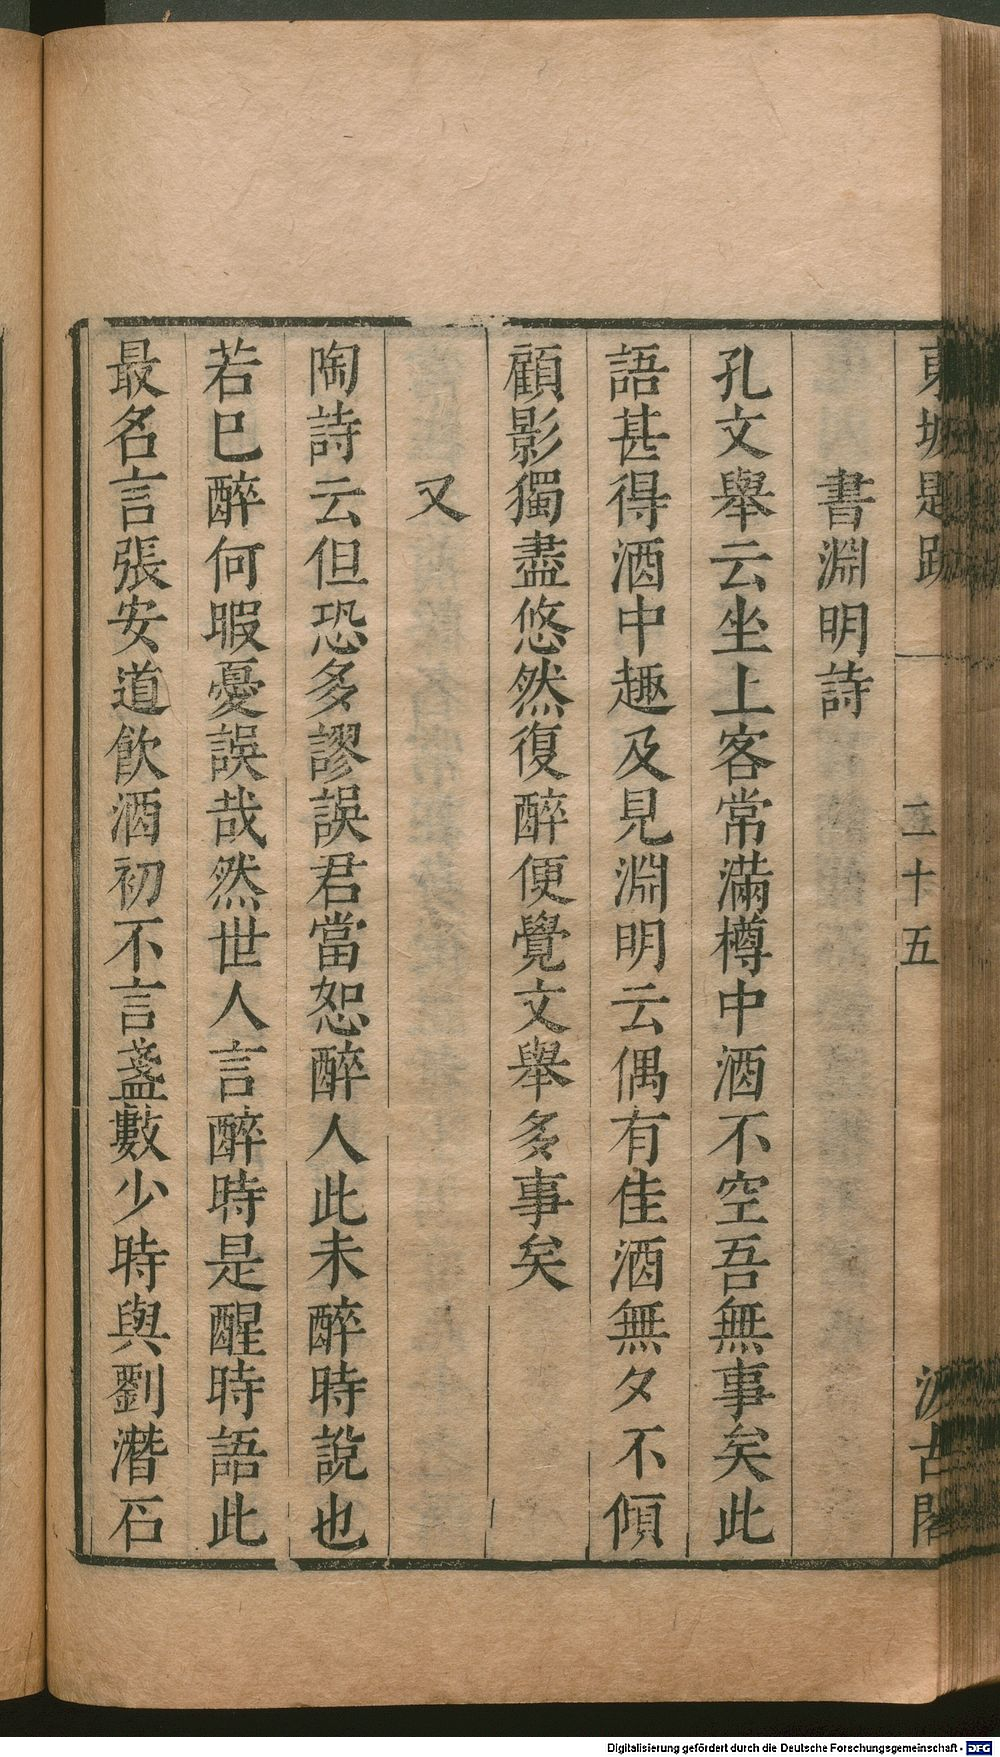 東坡題跋 二十五 汲古閣
書淵明詩
孔文舉云坐上客常滿樽中酒不空吾無事矣此
語甚得酒中趣及見淵明云偶有佳酒無夕不傾
顧影獨盡悠然復醉便覺文舉多事矣
又
陶詩云但恐多謬誤君當恕醉人此未醉時說也
若巳醉何暇憂誤哉然世人言醉時是醒時語此
最名言張安道飲酒初不言盞數少時與劉潛石
Digitalisierung gefördert durch die Deutsche Forschungsgemeinschaft - DFG